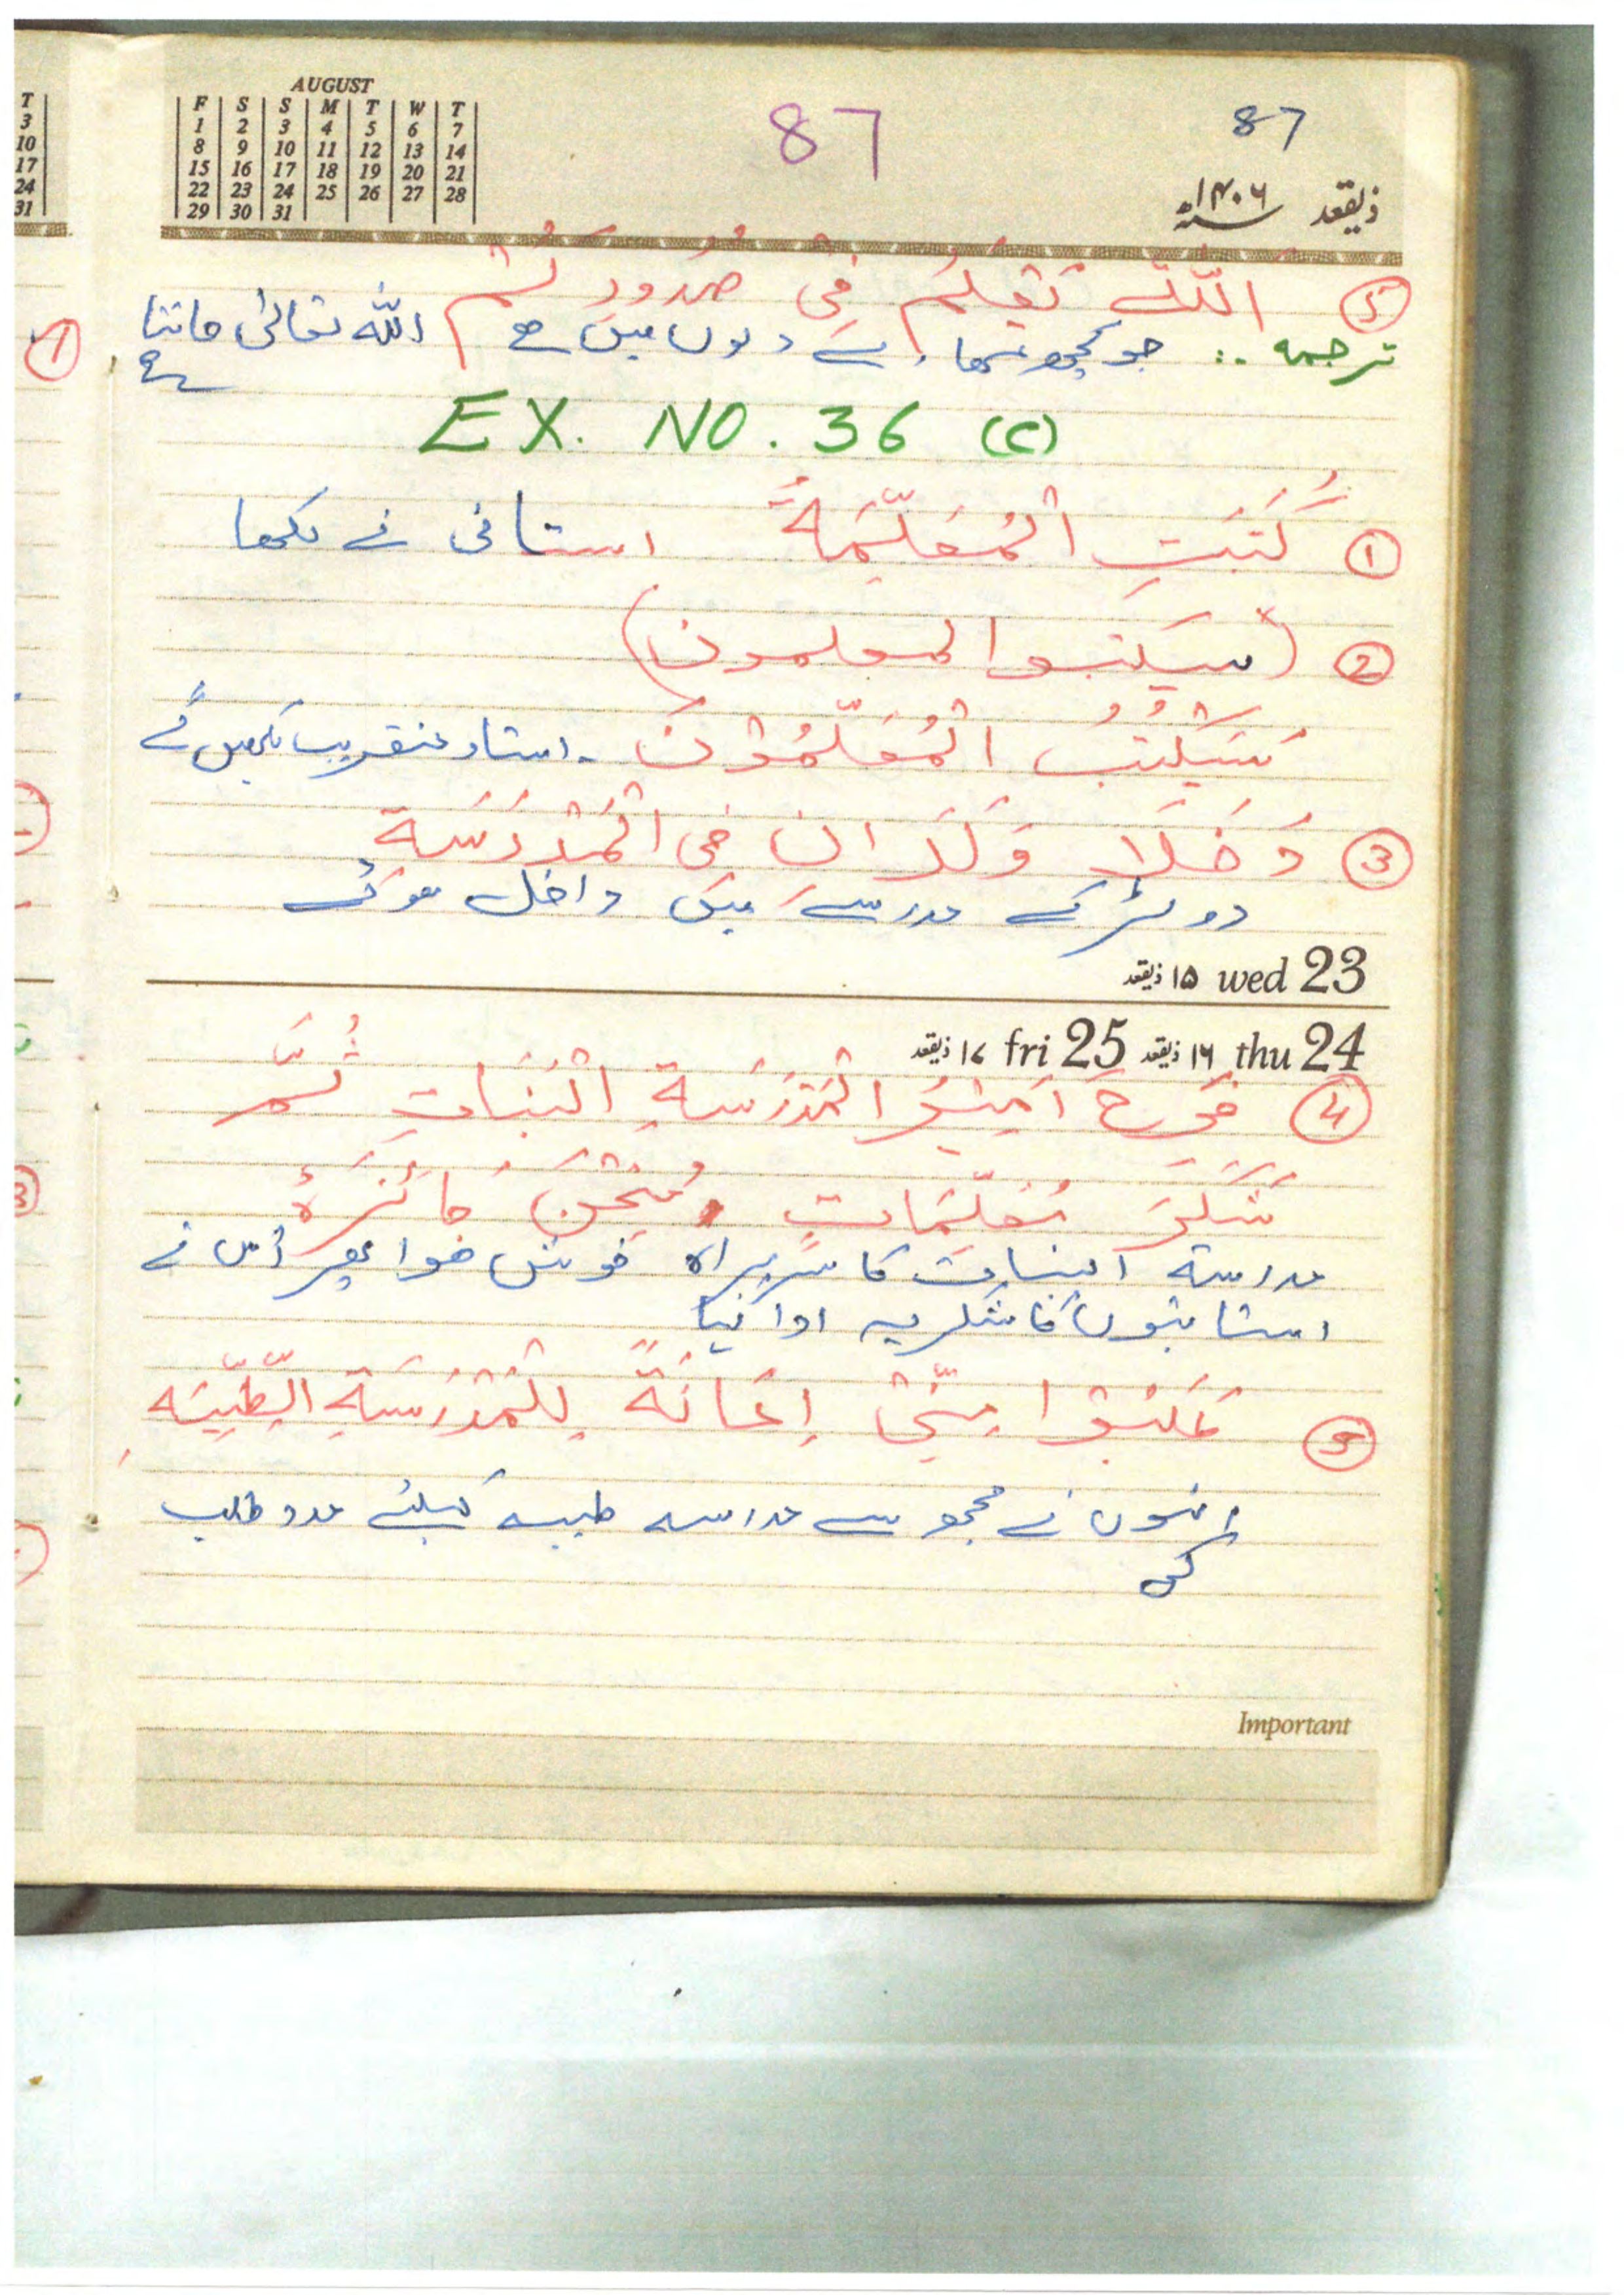 AUGUST
F S S M T W T
1 2 3 4 5 6 7
8 9 10 11 12 13 14
15 16 17 18 19 20 21
22 23 24 25 26 27 28
29 30 31
87
87
ذیقعد ۱۴۰۶
T
3
10
17
24
31
5 اَللّٰه يَعْلَمُ فِي صُدُورِكُمْ
ترجمہ :۔ جو کچھ تمھارے دلوں میں ھے اللہ تعالیٰ جانتا
ہے
EX. NO. 36 (C)
1 كَتَبَتِ الْمُعَلِّمَةُ استانی نے لکھا
2 (سیکتبوالمعلمون)
سَيَكْتُبُ الْمُعَلِّمُوْنَ ۔ استاد عنقریب لکھیں گے
3 دَخَلَا وَلَدَانِ فِى الْمَدْرَسَةِ
دو لڑکے مدرسے میں داخل ھوئے
۱۵ ذیقعد wed 23
۱۷ ذیقعد fri 25 ۱۶ ذیقعد thu 24
4 فَرِحَ اَمِيْرُ الْمَدْرَسَةِ الْبَنَاتِ ثُمَّ
شَكَرَ مُعَلِّمَاتٍ
مدرستہ البنات کا سربراہ خوش ھوا پھر اُس نے
استانیوں کا شکریہ ادا کیا
5 طَلَبُوْا مِنِّىْ اِعَانَةً لِلْمَدْرَسَةِ الطِّبِّيَه
انہوں نے مجھ سے مدرسہ طبیہ کیلئے مدد طلب
کی
Important